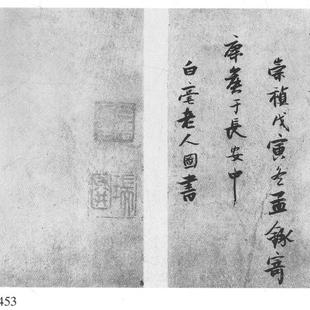 崇禎戊寅冬孟錄寄
康于長安中
白毫老人圖書
453